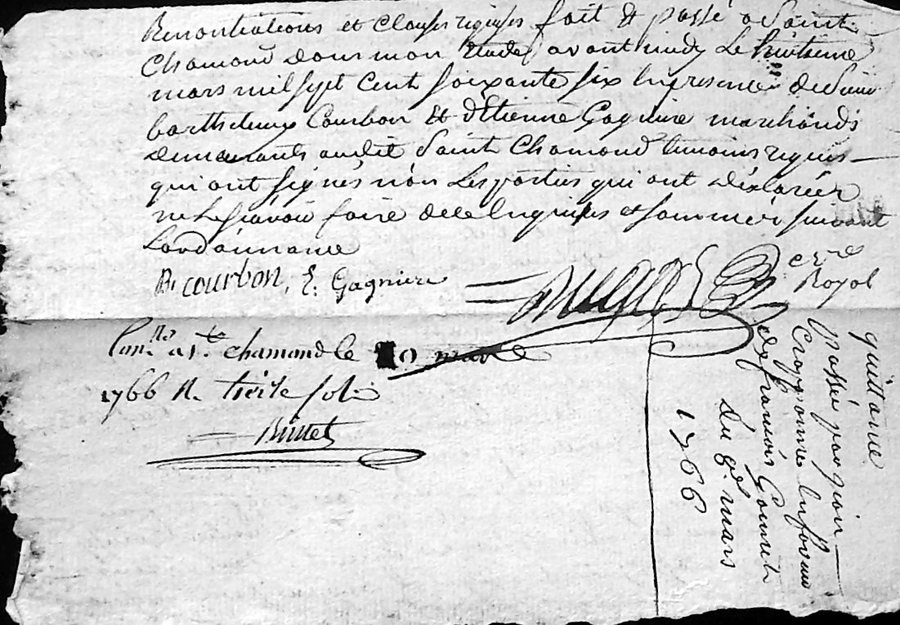 Renontiations et clauses requises fait & passé a Saint
chamond dans mon etude avant midy le huitieme
mars mil sept cent soixante six en presence de Sieur
barthelemy Courbon & d'Etienne Gagniere marchands
demeurants audit Saint Chamond temoins requis
qui ont signés non les parties qui ont déclarées
ne le sçavoir faire de ce enquises et sommées suivant
Lordonnance
B. courbon, E. Gagniere
Royal
Con.lle a St. chamond le
1766 R. treize sols
quittance
passée par
en faveur
de françois
du 8e. mars
1766